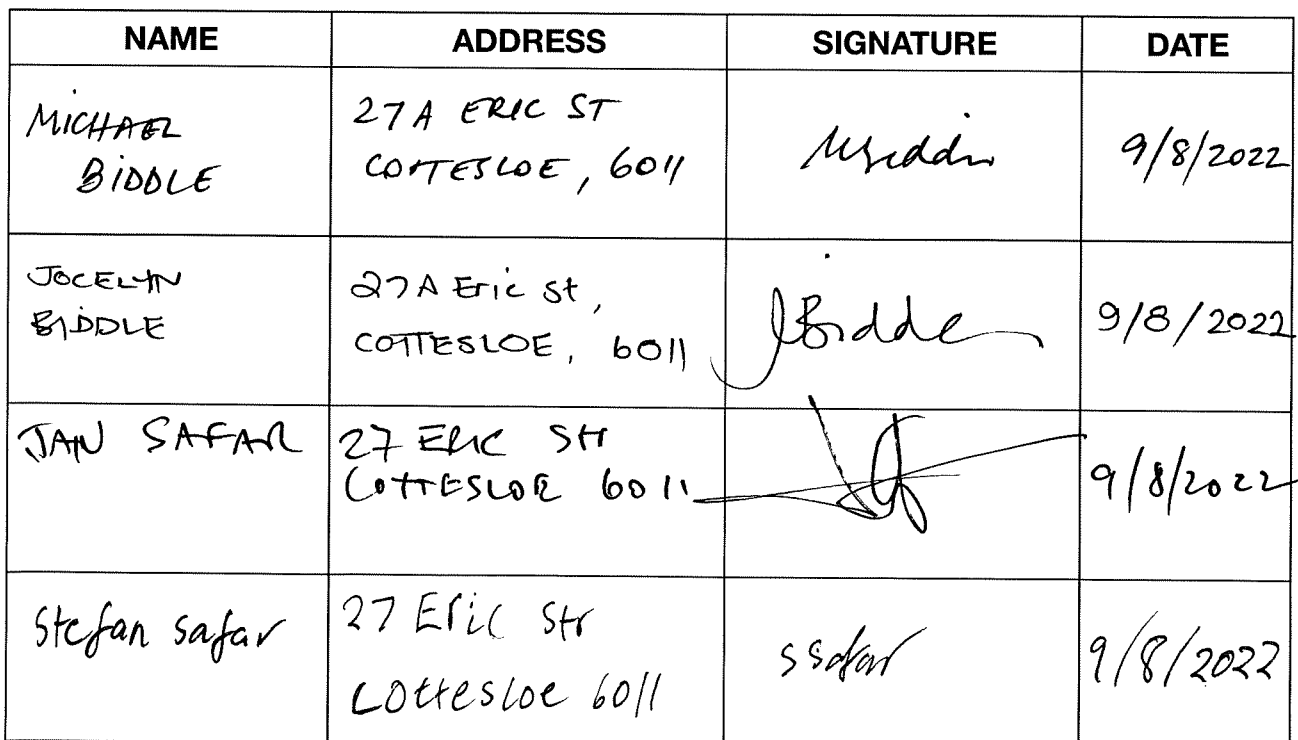 NAME ADDRESS SIGNATURE DATE
MICHAEL 27A ERIC ST
BIDDLE COTTESLOE, 6011 9/8/2022
JOCELYN 27A Eric St,
BIDDLE COTTESLOE, 6011 JBiddle 9/8/2022
JAN SAFAR 27 ERIC Str
COTTESLOE 6011 9/8/2022
Stefan Safar 27 Eric Str
Cottesloe 6011 SSafar 9/8/2022